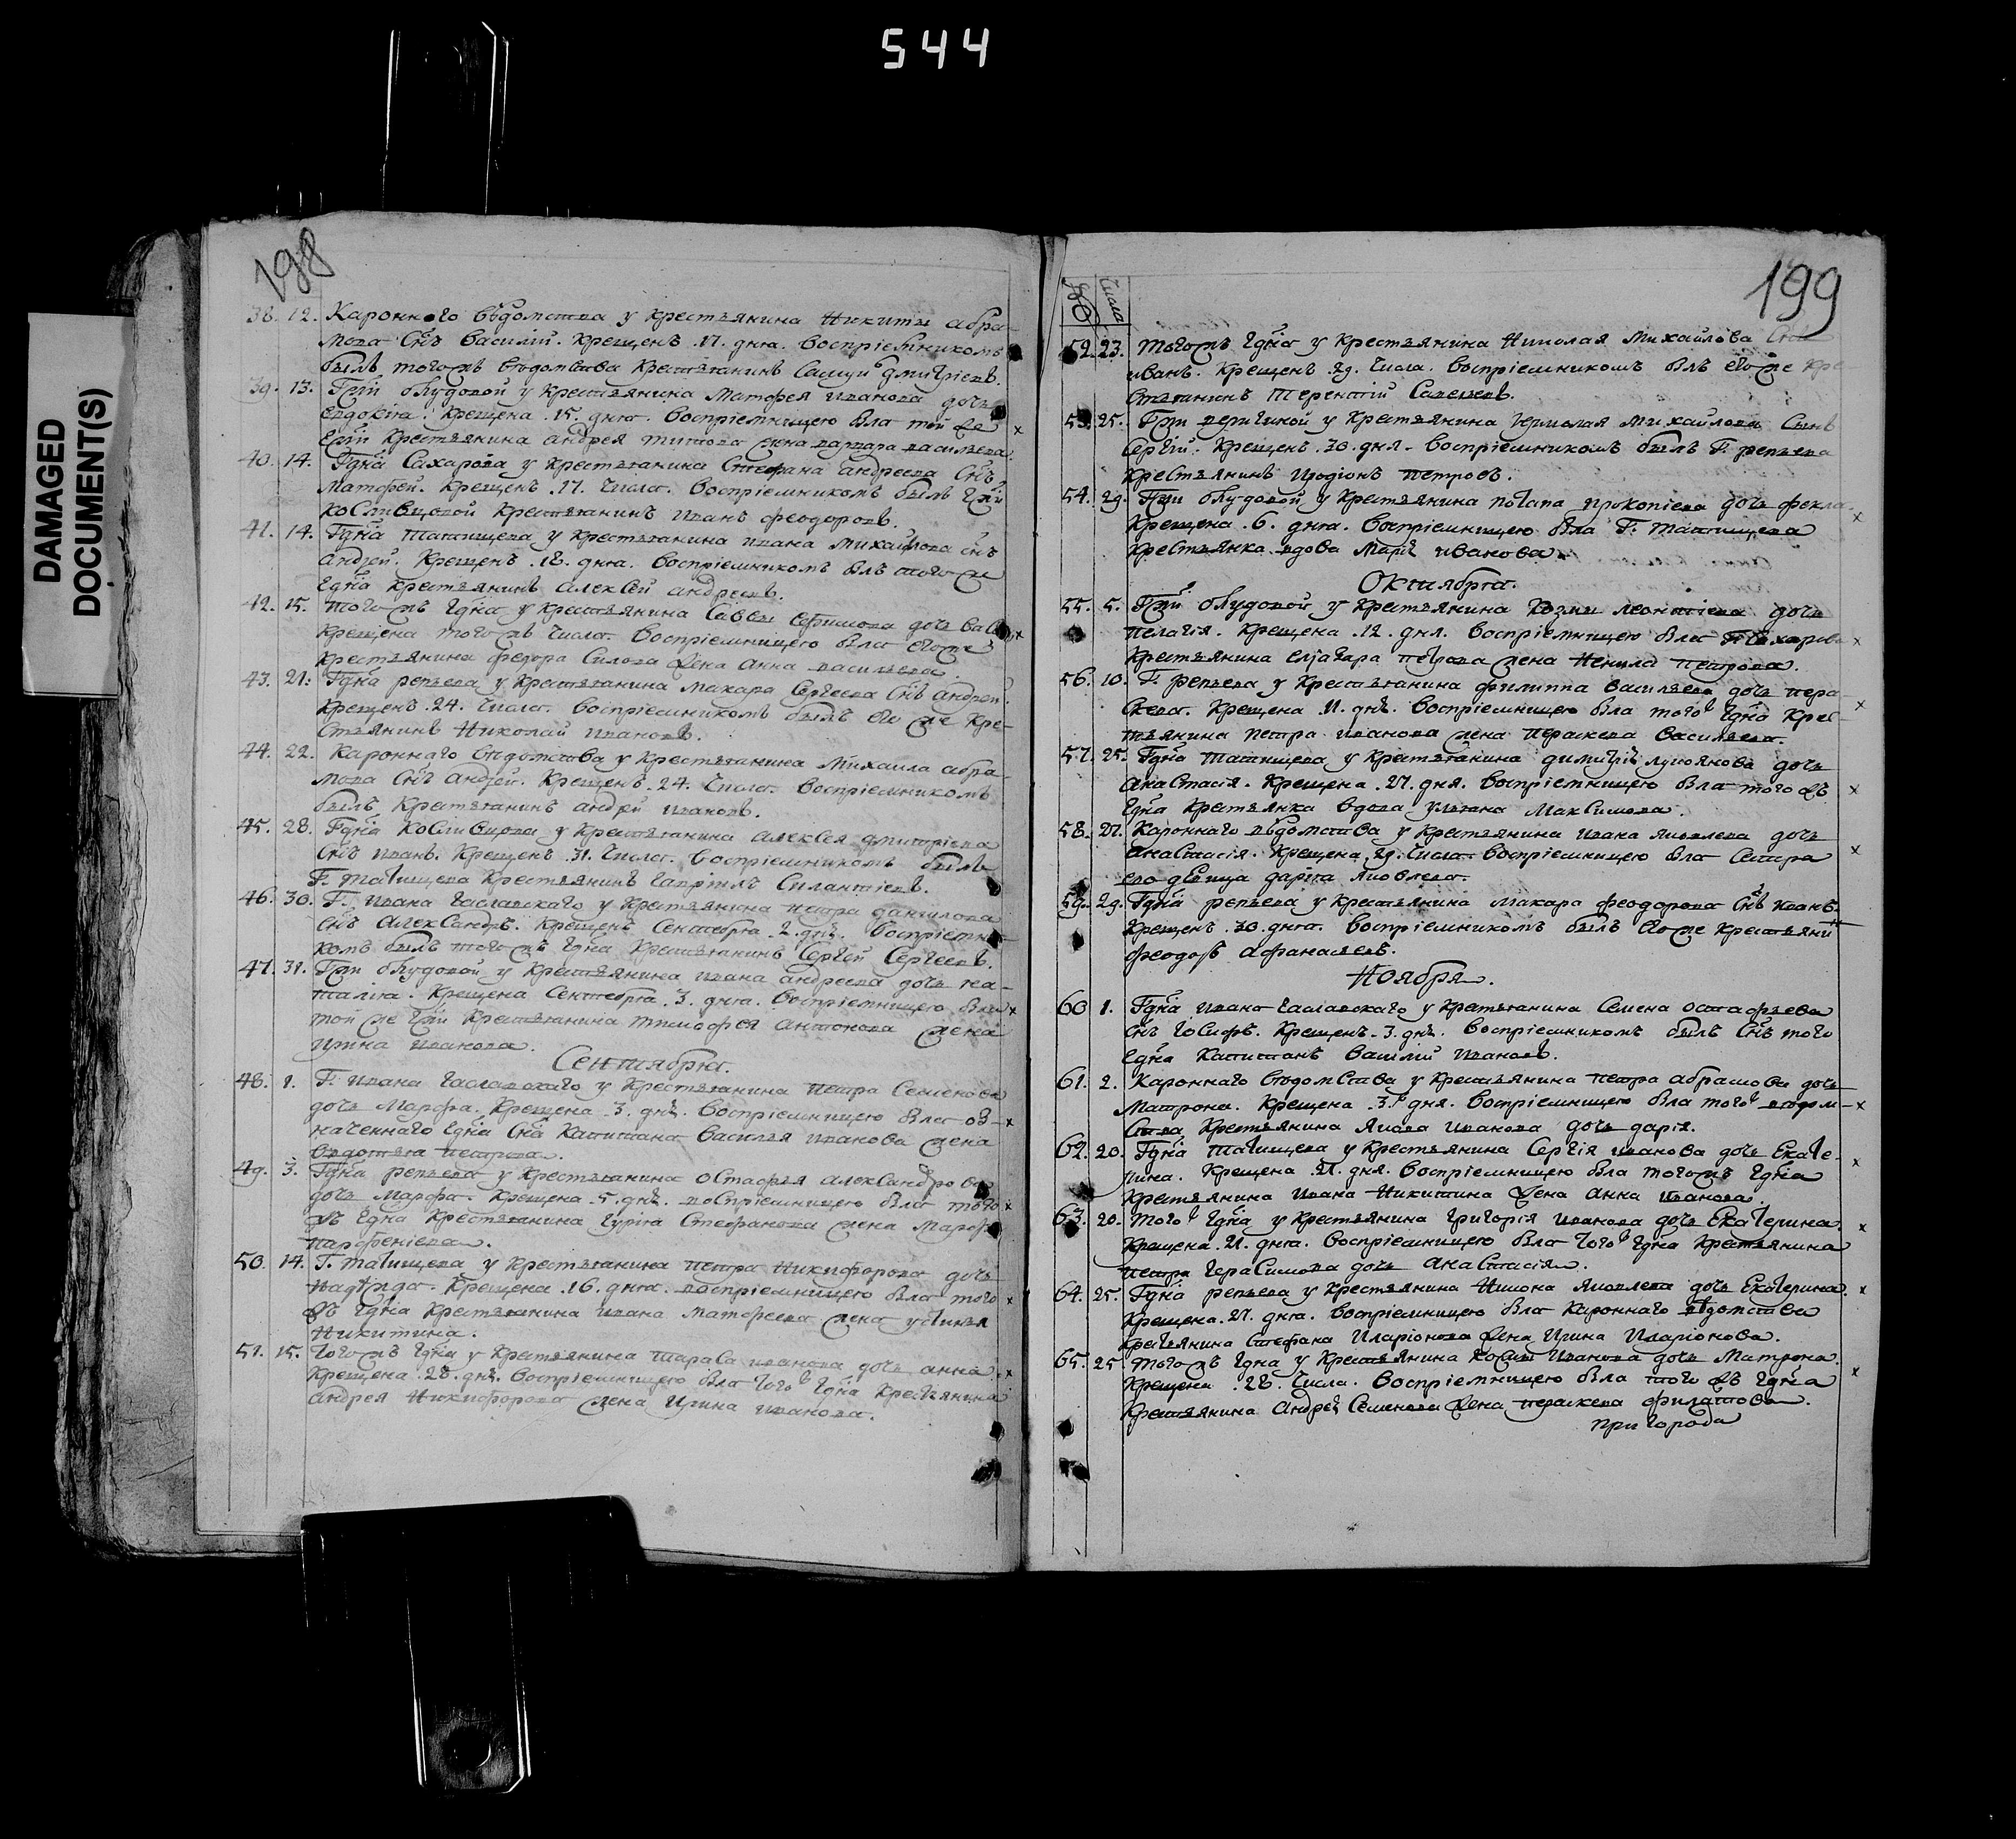 544
DAMAGED
DOCUMENT(S)
198
38. 12. Каронного вѣдомства у крестьянина Никиты абра-
мова Снъ Василій. Крещенъ .17. дня. Воспріемникомъ
былъ тогожъ вѣдомства крестьянинъ дмитріевъ.
39. 13. Гжи облудовой у крестьянина Матфея иванова дочь
евдокія. Крещена .15. дня. Воспріемницею бла той же
Гжи крестьянина андрея титова жена варвара васильева.
40. 14. Гдна Сахарова у крестьянина Стефана андреева Снъ
Матфей. Крещенъ .17. числа. Воспріемникомъ былъ Гжи
крестьянинъ иванъ феодоровъ.
41. 14. Гдна татищева у крестьянина ивана михайлова Снъ
андрей. Крещенъ .18. дня. Воспріемникомъ блъ того же
Гдна крестьянинъ алексей андреевъ.
42. 15. тогожъ Гдна у крестьянина Саввы дочь
крещена тогожъ числа. Воспріемницею бла его же
крестьянина федора Силова жена анна васильева.
43. 21. Гдна репьева у крестьянина макара Сергеева Снъ андрей.
Крещенъ .24. числа. Воспріемникомъ былъ его же кре-
стьянинъ Николай ивановъ.
44. 22. Каронного вѣдомства у крестьянина Михаила абра-
мова Снъ андрей. Крещенъ .24. числа. Воспріемникомъ
былъ крестьянинъ андрей ивановъ.
45. 28. Гдна у крестьянина алексея дмитріева
Снъ иванъ. Крещенъ .31. числа. Воспріемникомъ былъ
Г. татищева крестьянинъ гавріилъ Силантіевъ.
46. 30. Г. ивана у крестьянина петра данилова
Снъ александръ. Крещенъ Сентября .2. дня. Воспріемни-
комъ былъ тогожъ Гдна крестьянинъ Сергей Сергеевъ.
47. 31. Гжи облудовой у крестьянина ивана андреева дочь на-
талія. Крещена Сентября .3. дня. Воспріемницею бла
той же Гжи крестьянина тимофея антонова жена
ирина иванова.
Сентября.
48. 1. Г. ивана у крестьянина петра Семенова
дочь марфа. Крещена .3. дня. Воспріемницею бла оз-
наченнаго Гдна Сна капитана василья иванова жена
петрова.
49. 3. Гдна репьева у крестьянина остафья александрова
дочь марфа. Крещена .5. дня. воспріемницею бла того
жъ Гдна крестьянина гурія Стефанова жена марфа
парфеніева.
50. 14. Г. татищева у крестьянина петра Никифорова дочь
надѣжда. Крещена .16. дня. воспріемницею бла того
жъ Гдна крестьянина ивана матфеева жена устинья
Никитина.
51. 15. тогожъ Гдна у крестьянина тараса иванова дочь анна.
Крещена .28. дня. Воспріемницею бла того Гдна крестьянина
андрея Никифорова жена ирина иванова.
199
№ числа
52. 23. тогожъ Гдна у крестьянина Николая михайлова Снъ
иванъ. Крещенъ .29. числа. Воспріемникомъ блъ его же кре
стьянинъ терентій Савельевъ.
53. 25. Гжи у крестьянина ермолая михайлова Сынъ
Сергій. Крещенъ .30. дня. Воспріемникомъ былъ Г. репьева
крестьянинъ иродіонъ петровъ.
54. 29. Гжи облудовой у крестьянина потапа прокопіева дочь фекла.
Крещена .6. дня. Воспріемницею бла Г. татищева
крестьянка вдова марія иванова.
Октября.
55. 5. Гжи облудовой у крестьянина козмы леонтіева дочь
пелагія. Крещена .12. дня. Воспріемницею бла Г. Сахарова
крестьянина елизара петрова жена Ненила петрова.
56. 10. Г. репьева у крестьянина филиппа васильева дочь пера-
скева. Крещена .11. дня. Воспріемницею бла того Гдна крес-
тьянина петра иванова жена пераскева васильева.
57. 25. Гдна татищева у крестьянина димитрія лукоянова дочь
анастасія. Крещена .27. дня. Воспріемницею бла того жъ
Гдна крестьянка вдова ульяна максимова.
58. 27. Каронного вѣдомства у крестьянина ивана яковлева дочь
анастасія. Крещена .29. числа. Воспріемницею бла сестра
его дѣвица дарья яковлева.
59. 29. Гдна репьева у крестьянина макара феодорова Снъ иванъ.
Крещенъ .30. дня. Воспріемникомъ былъ его же крестьянинъ
феодоръ афанасьевъ.
Ноября.
60 1. Гдна ивана у крестьянина Семена остафьева
Снъ іосифъ. Крещенъ .3. дня. Воспріемникомъ былъ Снъ того
Гдна капитанъ василій ивановъ.
61. 2. Каронного вѣдомства у крестьянина петра абрамова дочь
матрона. Крещена .3. дня. Воспріемницею бла того вѣдом-
ства крестьянина якова иванова дочь дарія.
62. 20. Гдна татищева у крестьянина Сергія иванова дочь екате-
рина. Крещена .21. дня. Воспріемницею бла тогожъ Гдна
крестьянина ивана Никитина жена анна иванова.
63. 20. того Гдна у крестьянина григорія иванова дочь екатерина.
Крещена .21. дня. Воспріемницею бла того Гдна крестьянина
петра герасимова дочь анастасія.
64. 25. Гдна репьева у крестьянина Никона яковлева дочь екатерина.
Крещена .27. дня. Воспріемницею бла каронного вѣдомства
крестьянина Стефана иларіонова жена ирина иларіонова.
65. 25. тогожъ Гдна у крестьянина космы иванова дочь матрона.
Крещена .28. числа. Воспріемницею бла того жъ Гдна
крестьянина андрея Семенова жена пераскева филатова.
пригорода